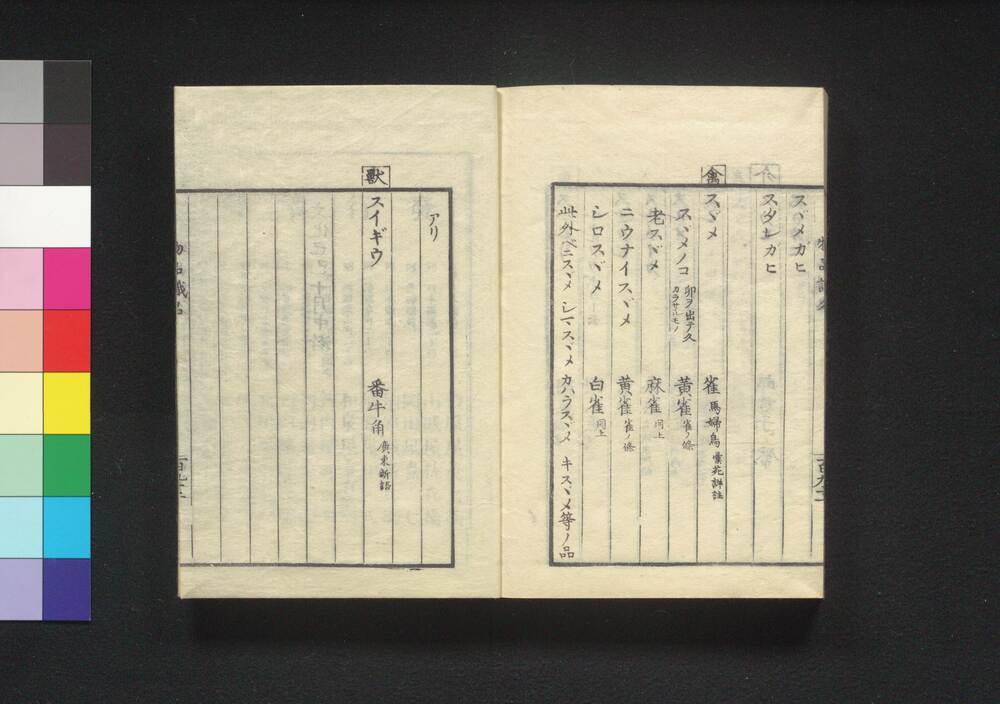 スヾメガヒ
スダレガヒ
禽
スヾメ 雀 馬婦鳥 彙苑詳註
スヾメノコ 卵ヲ出テ久カラサルモノ 黄雀 雀ノ條
老スヾメ 麻雀 同上
ニウナイスヾメ 黄雀 雀ノ條
シロスヾメ 白雀 同上
此外ベニスヾメ シマスヾメ カハラスヾメ キスヾメ等ノ品
アリ
獸
スイギウ 番牛角 廣東新語